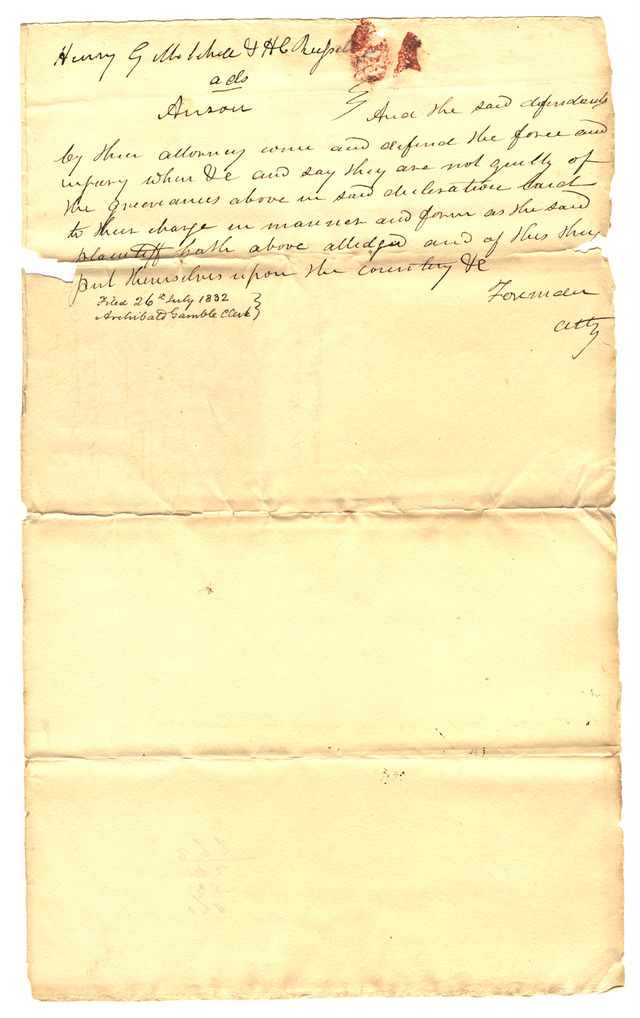 Henry G Mitchell & H C Russell
ads
Anson } And the said defendants
by their attorney come and defend the force and
injury when &c and say they are not guilty of
the grievances above in said declaration laid
to their charge in manner and form as the said
plaintiff hath above alledged and of this they
put themselves upon the country &c
Filed 26th July 1832 }
Archibald Gamble Clerk }
atty